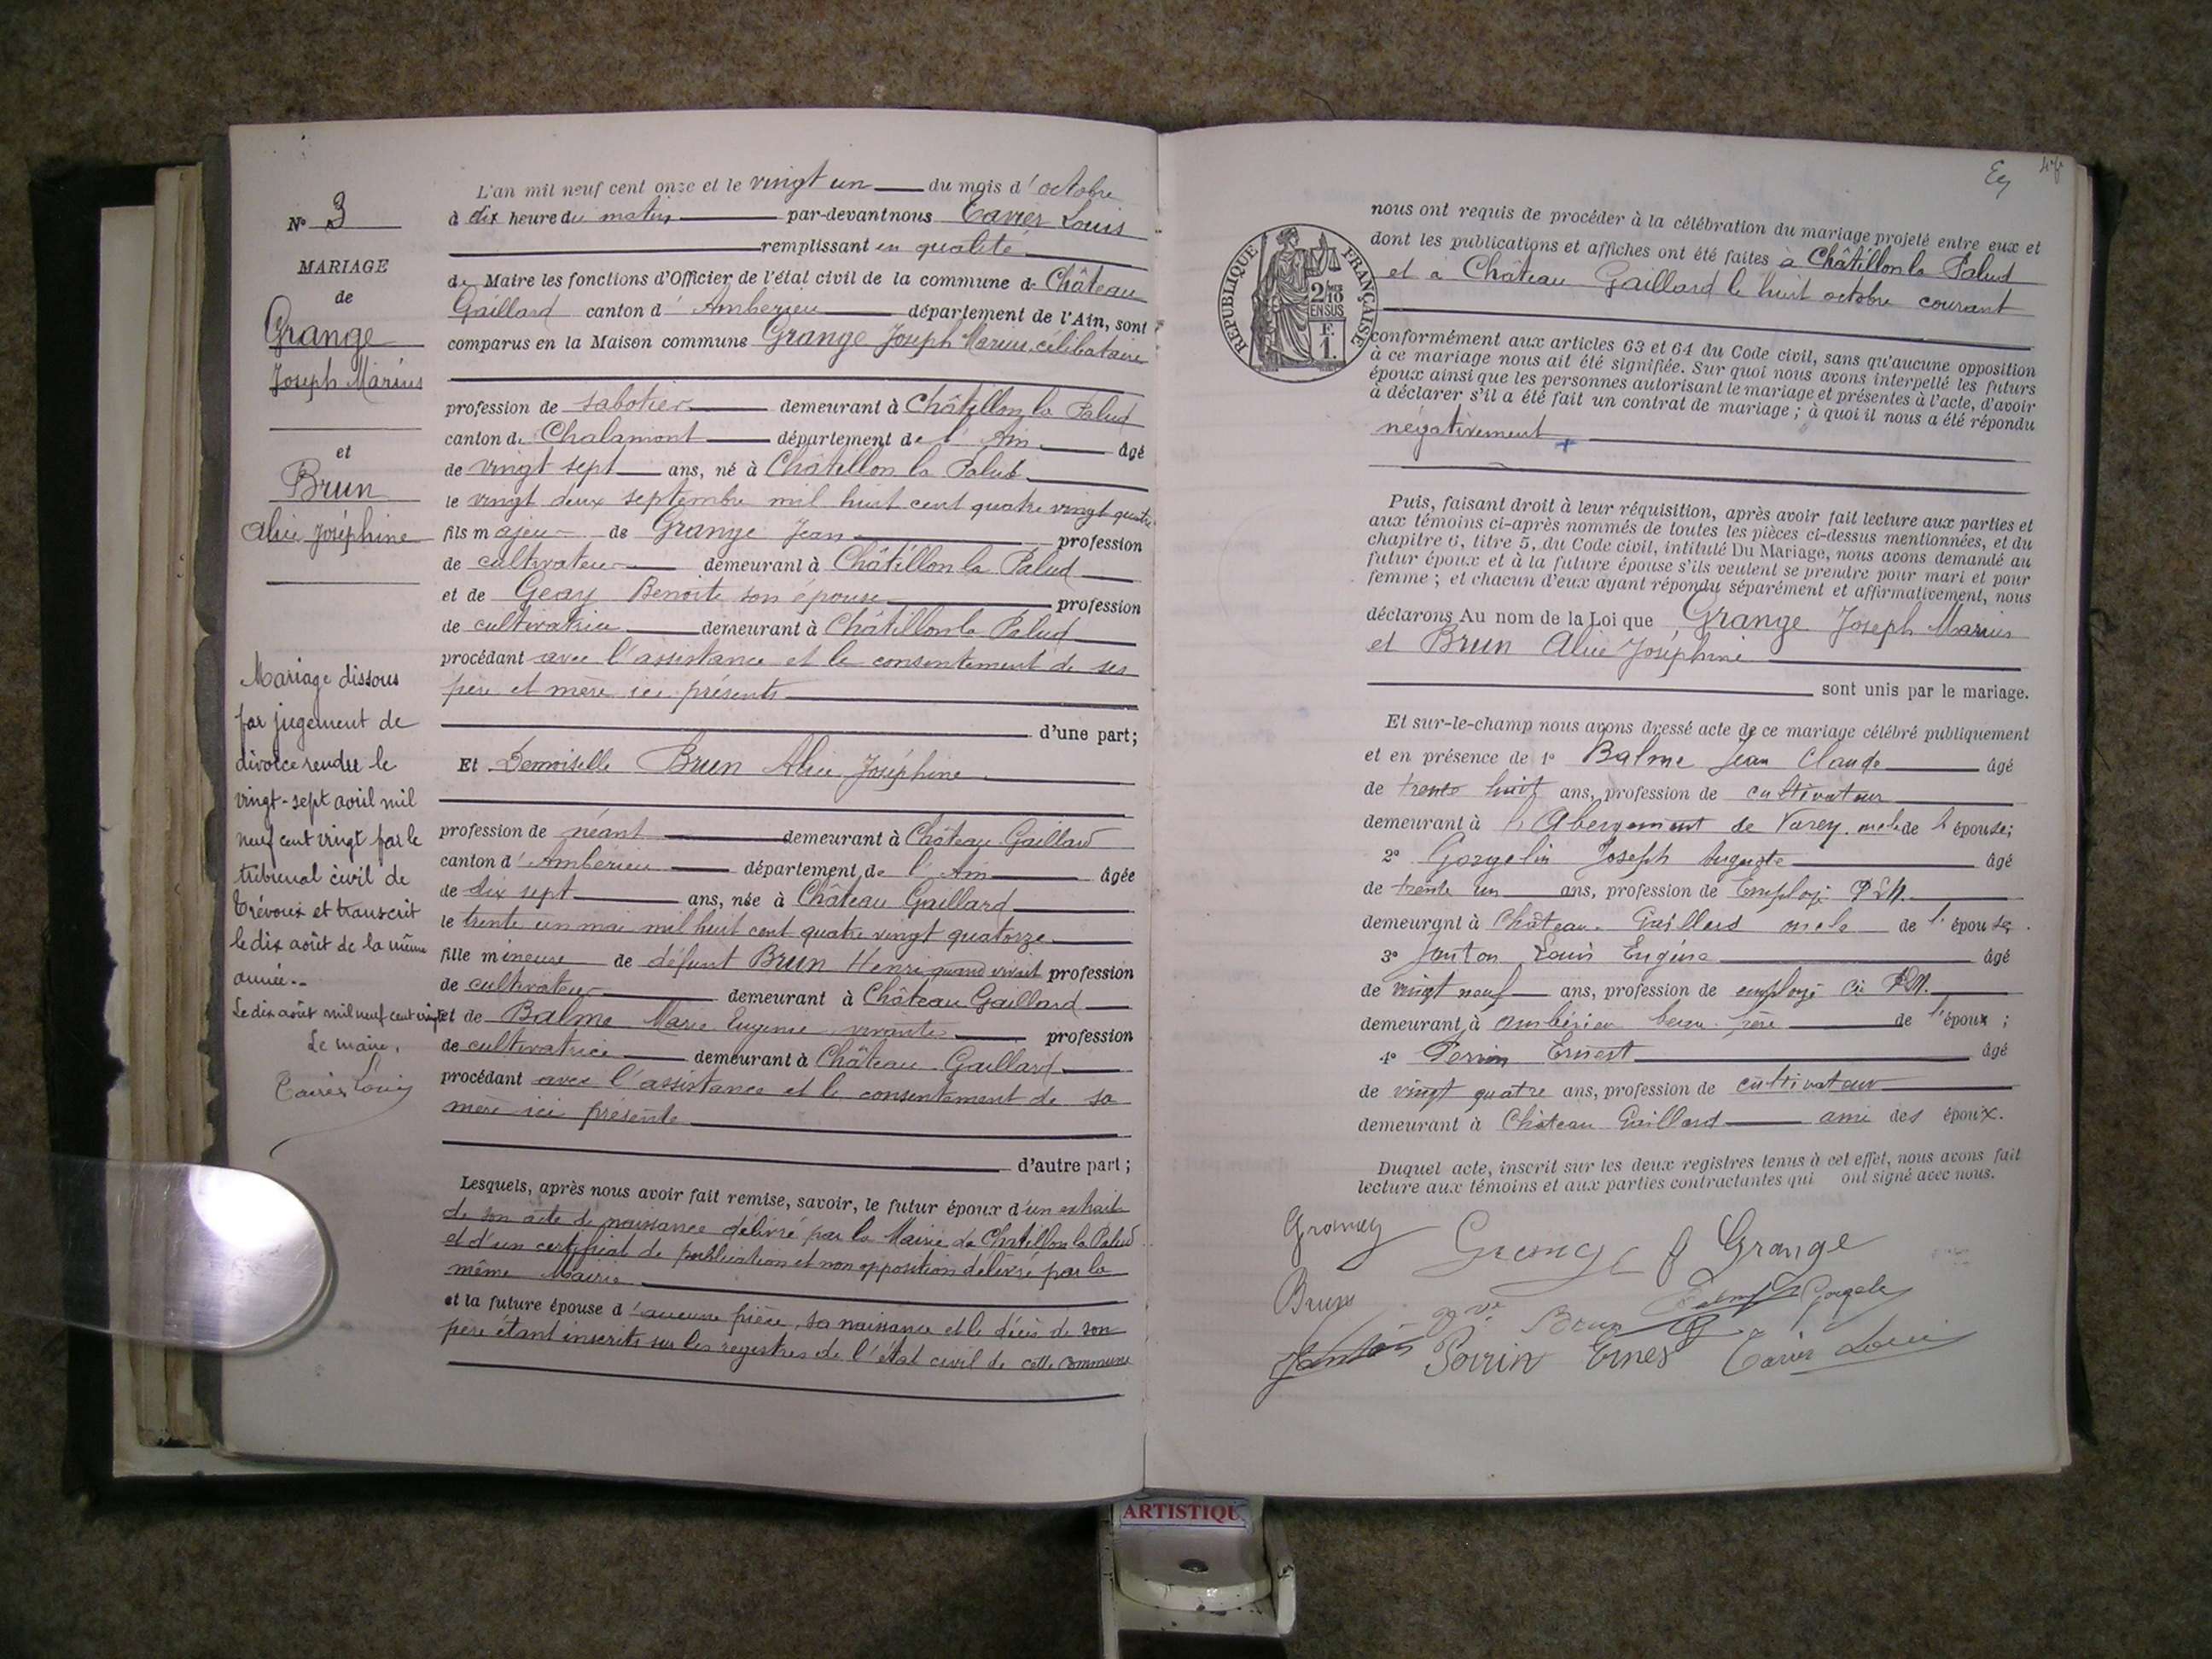 N° 3
MARIAGE
de
Grange
Joseph Marius
et
Brun
Alice Joséphine
Mariage dissous
par jugement de
divorce rendu le
vingt-sept avril mil
neuf cent vingt par le
tribunal civil de
Trévoux et transcrit
le dix août de la même
année..
Le dix août mil neuf cent vingt
Le maire,
Tavier Louis
L'an mil neuf cent onze et le vingt un du mois d'octobre
à dix heure du matin par-devant nous Tavier Louis
remplissant en qualité
de Maire les fonctions d'Officier de l'état civil de la commune de Château
Gaillard canton d'Ambérieu département de l'Ain, sont
comparus en la Maison commune Grange Joseph Marius, célibataire
profession de sabotier demeurant à Châtillon la Palud
canton de Chalamont département de l'Ain âgé
de vingt sept ans, né à Châtillon la Palud
le vingt deux septembre mil huit cent quatre vingt quatre
fils majeur de Grange Jean profession
de cultivateur demeurant à Châtillon la Palud
et de Geay Benoite son épouse profession
de cultivatrice demeurant à Châtillon la Palud
procédant avec l'assistance et le consentement de ses
père et mère ici présents
d'une part;
Et Demoiselle Brun Alice Joséphine
profession de néant demeurant à Château Gaillard
canton d'Ambérieu département de l'Ain âgée
de dix sept ans, née à Château Gaillard
le trente un mai mil huit cent quatre vingt quatorze
fille mineure de défunt Brun Henri quand vivait profession
de cultivateur demeurant à Château Gaillard
et de Balme Marie Eugénie vivante profession
de cultivatrice demeurant à Château Gaillard
procédant avec l'assistance et le consentement de sa
mère ici présente
d'autre part;
Lesquels, après nous avoir fait remise, savoir, le futur époux d'un extrait
de son acte de naissance délivré par la Mairie de Chatillon la Palud
et d'un certificat de publication et non opposition délivré par la
même Mairie
et la future épouse d'aucune pièce, sa naissance et le décès de son
père étant inscrits sur les registres de l'état civil de cette commune
nous ont requis de procéder à la célébration du mariage projeté entre eux et
dont les publications et affiches ont été faites à Châtillon la Palud
et à Château Gaillard le huit octobre courant
RÉPUBLIQUE FRANÇAISE
2/10
EN SUS
F.
1.
conformément aux articles 63 et 64 du Code civil, sans qu'aucune opposition
à ce mariage nous ait été signifiée. Sur quoi nous avons interpellé les futurs
époux ainsi que les personnes autorisant le mariage et présentes à l'acte, d'avoir
à déclarer s'il a été fait un contrat de mariage; à quoi il nous a été répondu
négativement
Puis, faisant droit à leur réquisition, après avoir fait lecture aux parties et
aux témoins ci-après nommés de toutes les pièces ci-dessus mentionnées, et du
chapitre 6, titre 5, du Code civil, intitulé Du Mariage, nous avons demandé au
futur époux et à la future épouse s'ils veulent se prendre pour mari et pour
femme; et chacun d'eux ayant répondu séparément et affirmativement, nous
déclarons Au nom de la Loi que Grange Joseph Marius
et Brun Alice Joséphine
sont unis par le mariage.
Et sur-le-champ nous avons dressé acte de ce mariage célébré publiquement
et en présence de 1° Balme Jean Claude âgé
de trente huit ans, profession de cultivateur
demeurant à l'Abergement de Varey oncle de l'épouse;
2° Gorgelin Joseph Auguste âgé
de trente un ans, profession de Employé PLM.
demeurant à Château-Gaillard oncle de l'épouse
3° Janton Louis Eugène âgé
de vingt neuf ans, profession de employé
demeurant à Ambérieu beau-frère de l'époux;
4° Perrin Ernest âgé
de vingt quatre ans, profession de cultivateur
demeurant à Château Gaillard ami des époux.
Duquel acte, inscrit sur les deux registres tenus à cet effet, nous avons fait
lecture aux témoins et aux parties contractantes qui ont signé avec nous.
Grange Grange J Grange
Brun Vve Brun
Janton Poirin Ernest Tavier Louis
ARTISTIQU